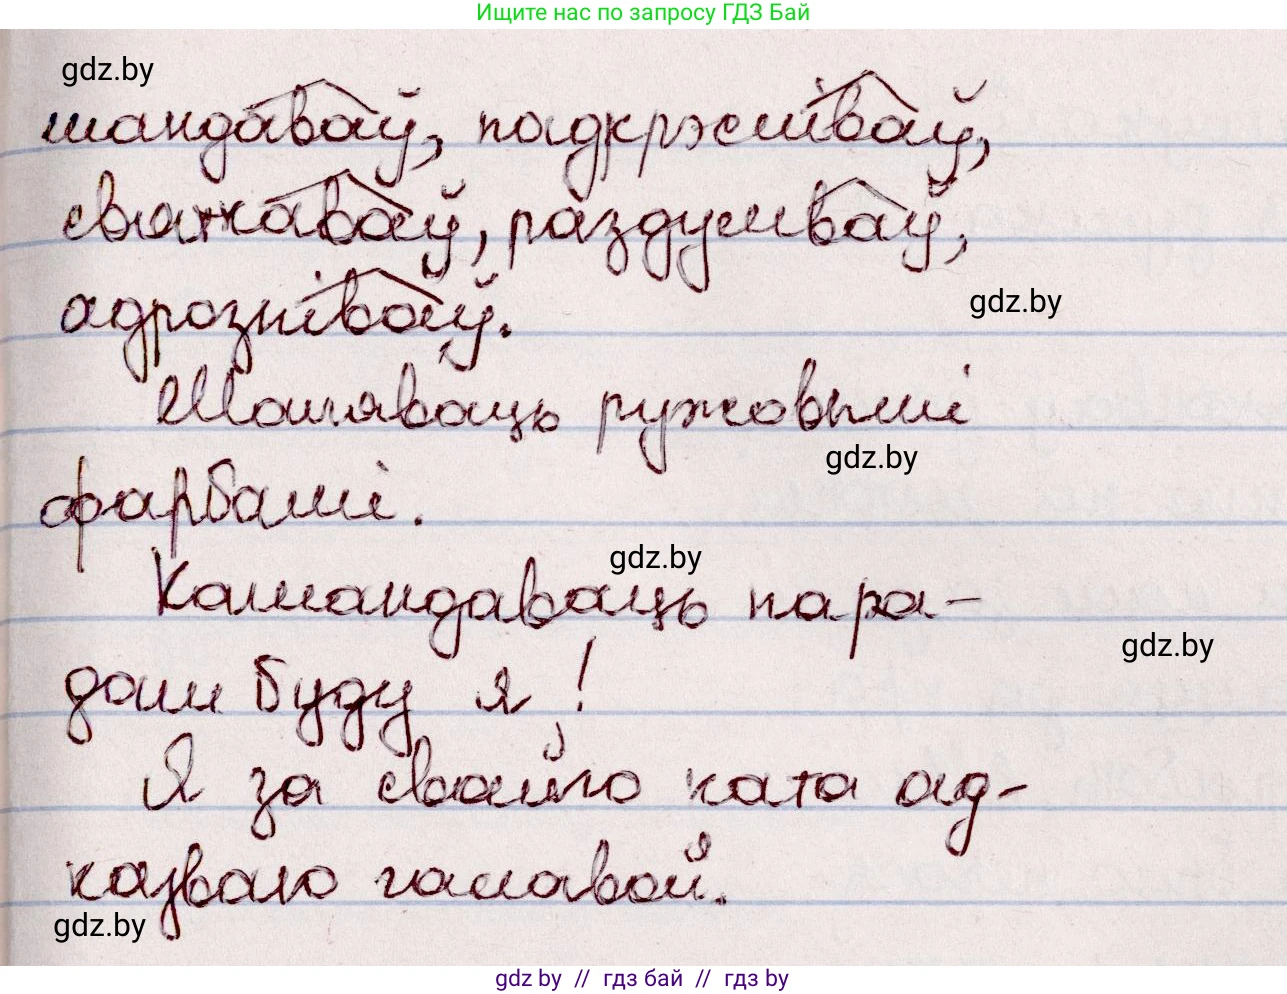 Ищите нас по запросу ГДЗ Бай
gdz.by
мандаваў, падкрэсліваў,
свяжаваў, раздумваў,
адрозніваў.
gdz.by
Маляваць ружовымі
gdz.by
фарбамі.
gdz.by
Камандаваць пара-
gdz.by
дам буду я!
Я за свайго ката ад-
казваю галавой.
gdz.by
gdz by // гдз бай // гдз by